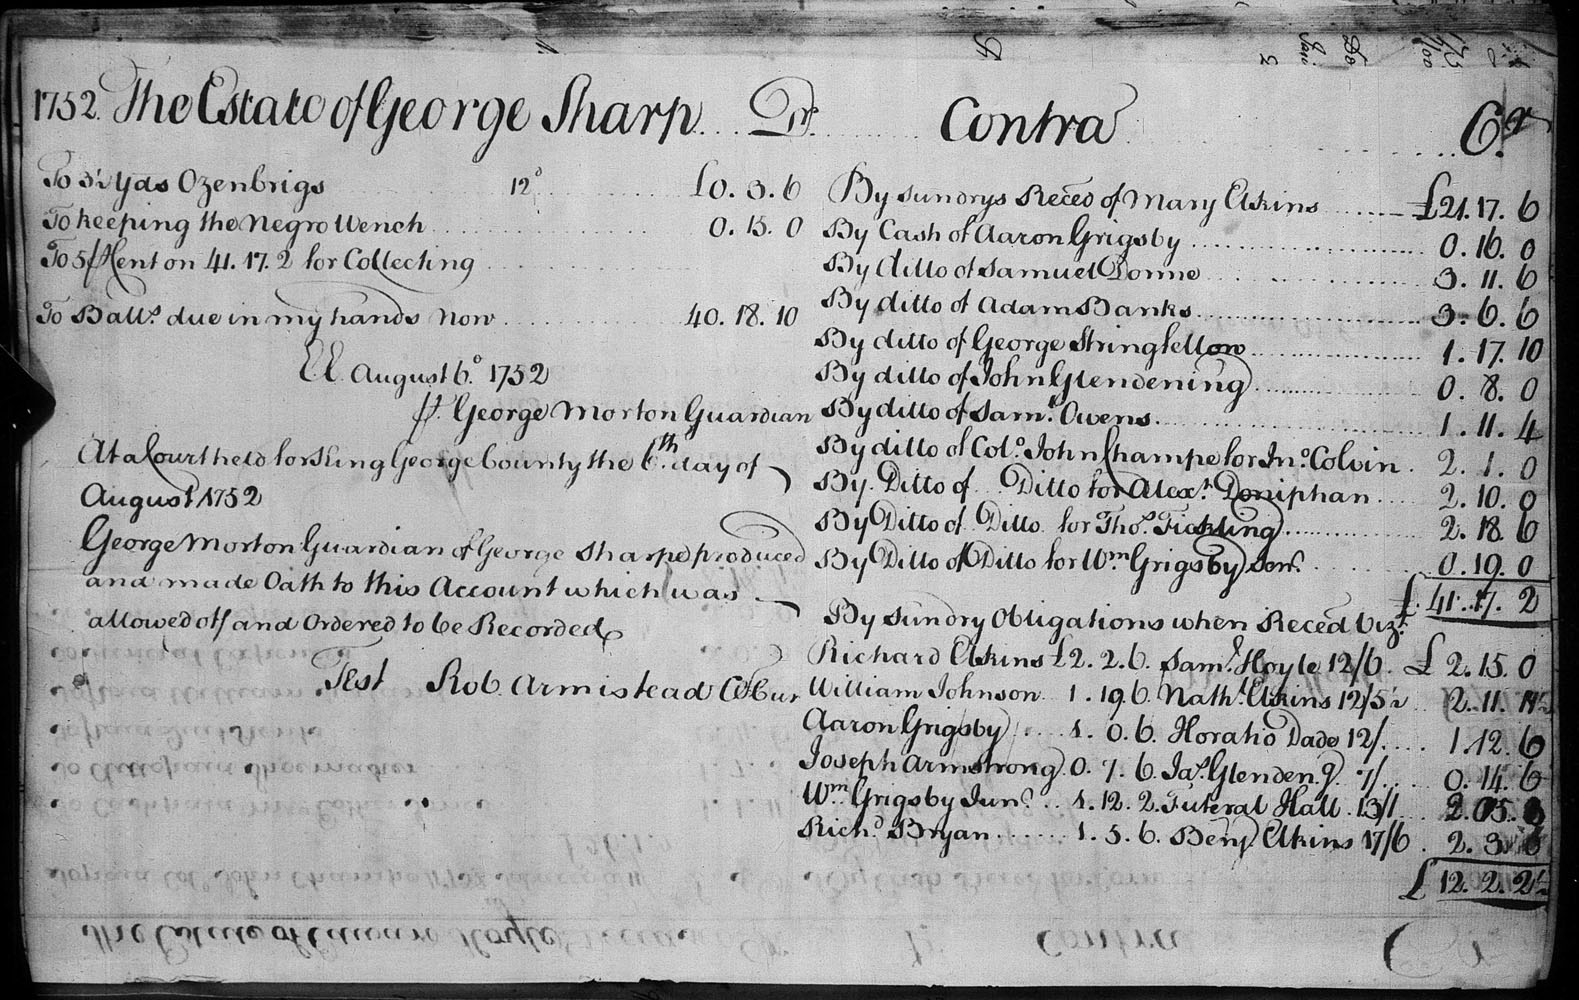 1752. The Estate of George Sharp Dr.
To 3½ Yds Ozenbrigs 12d £0. 3. 6
To keeping the Negro Wench 0. 15. 0
To 5 ⅌ Cent on 41. 17. 2 for Collecting
To Balle. due in my hands Now 40. 18. 10
EE. August 6o. 1752
⅌. George Morton Guardian
At a Court held for King George County the 6th. day of
August 1752
George Morton Guardian of George Sharpe produced
and made Oath to this Account which was
allowed off and Ordered to be Recorded
Test Rob. Armistead Cl Cur
Contra Cr
By Sundrys Reced of Mary Elkins £21. 17. 6
By Cash of Aaron Grigsby 0. 16. 0
By ditto of Samuel Donne 3. 11. 6
By ditto of Adam Banks 3. 6. 6
By ditto of George Stringfellow 1. 17. 10
By ditto of John Glendening 0. 8. 0
By ditto of Saml. Owens 1. 11. 4
By ditto of Colo. John Champe for Jno. Colvin 2. 1. 0
By Ditto of Ditto for Alexr. Doniphan 2. 10. 0
By Ditto of Ditto for Thos. Fickling 2. 18. 6
By Ditto of Ditto for Wm Grigsby Senr. 0. 19. 0
£ 41. 17. 2
By Sundry Obligations when Reced Vizt.
Richard Elkins £2. 2. 6. Saml. Hoyle 12/6 £ 2. 15. 0
William Johnson 1. 19. 6. Nathl. Elkins 12/5½ 2. 11. 11½
Aaron Grigsby 1. 0. 6. Horatio Dade 12/ 1. 12. 6
Joseph Armstrong 0. 7. 6. Jas. Glendeng. 7/ 0. 14. 6
Wm Grigsby Junr. 1. 12. 2. Futeral Hall 13/1 2. 05. 3
Richd. Bryan 1. 5. 6. Benj. Elkins 17/6 2. 3.
£ 12. 2. 2½